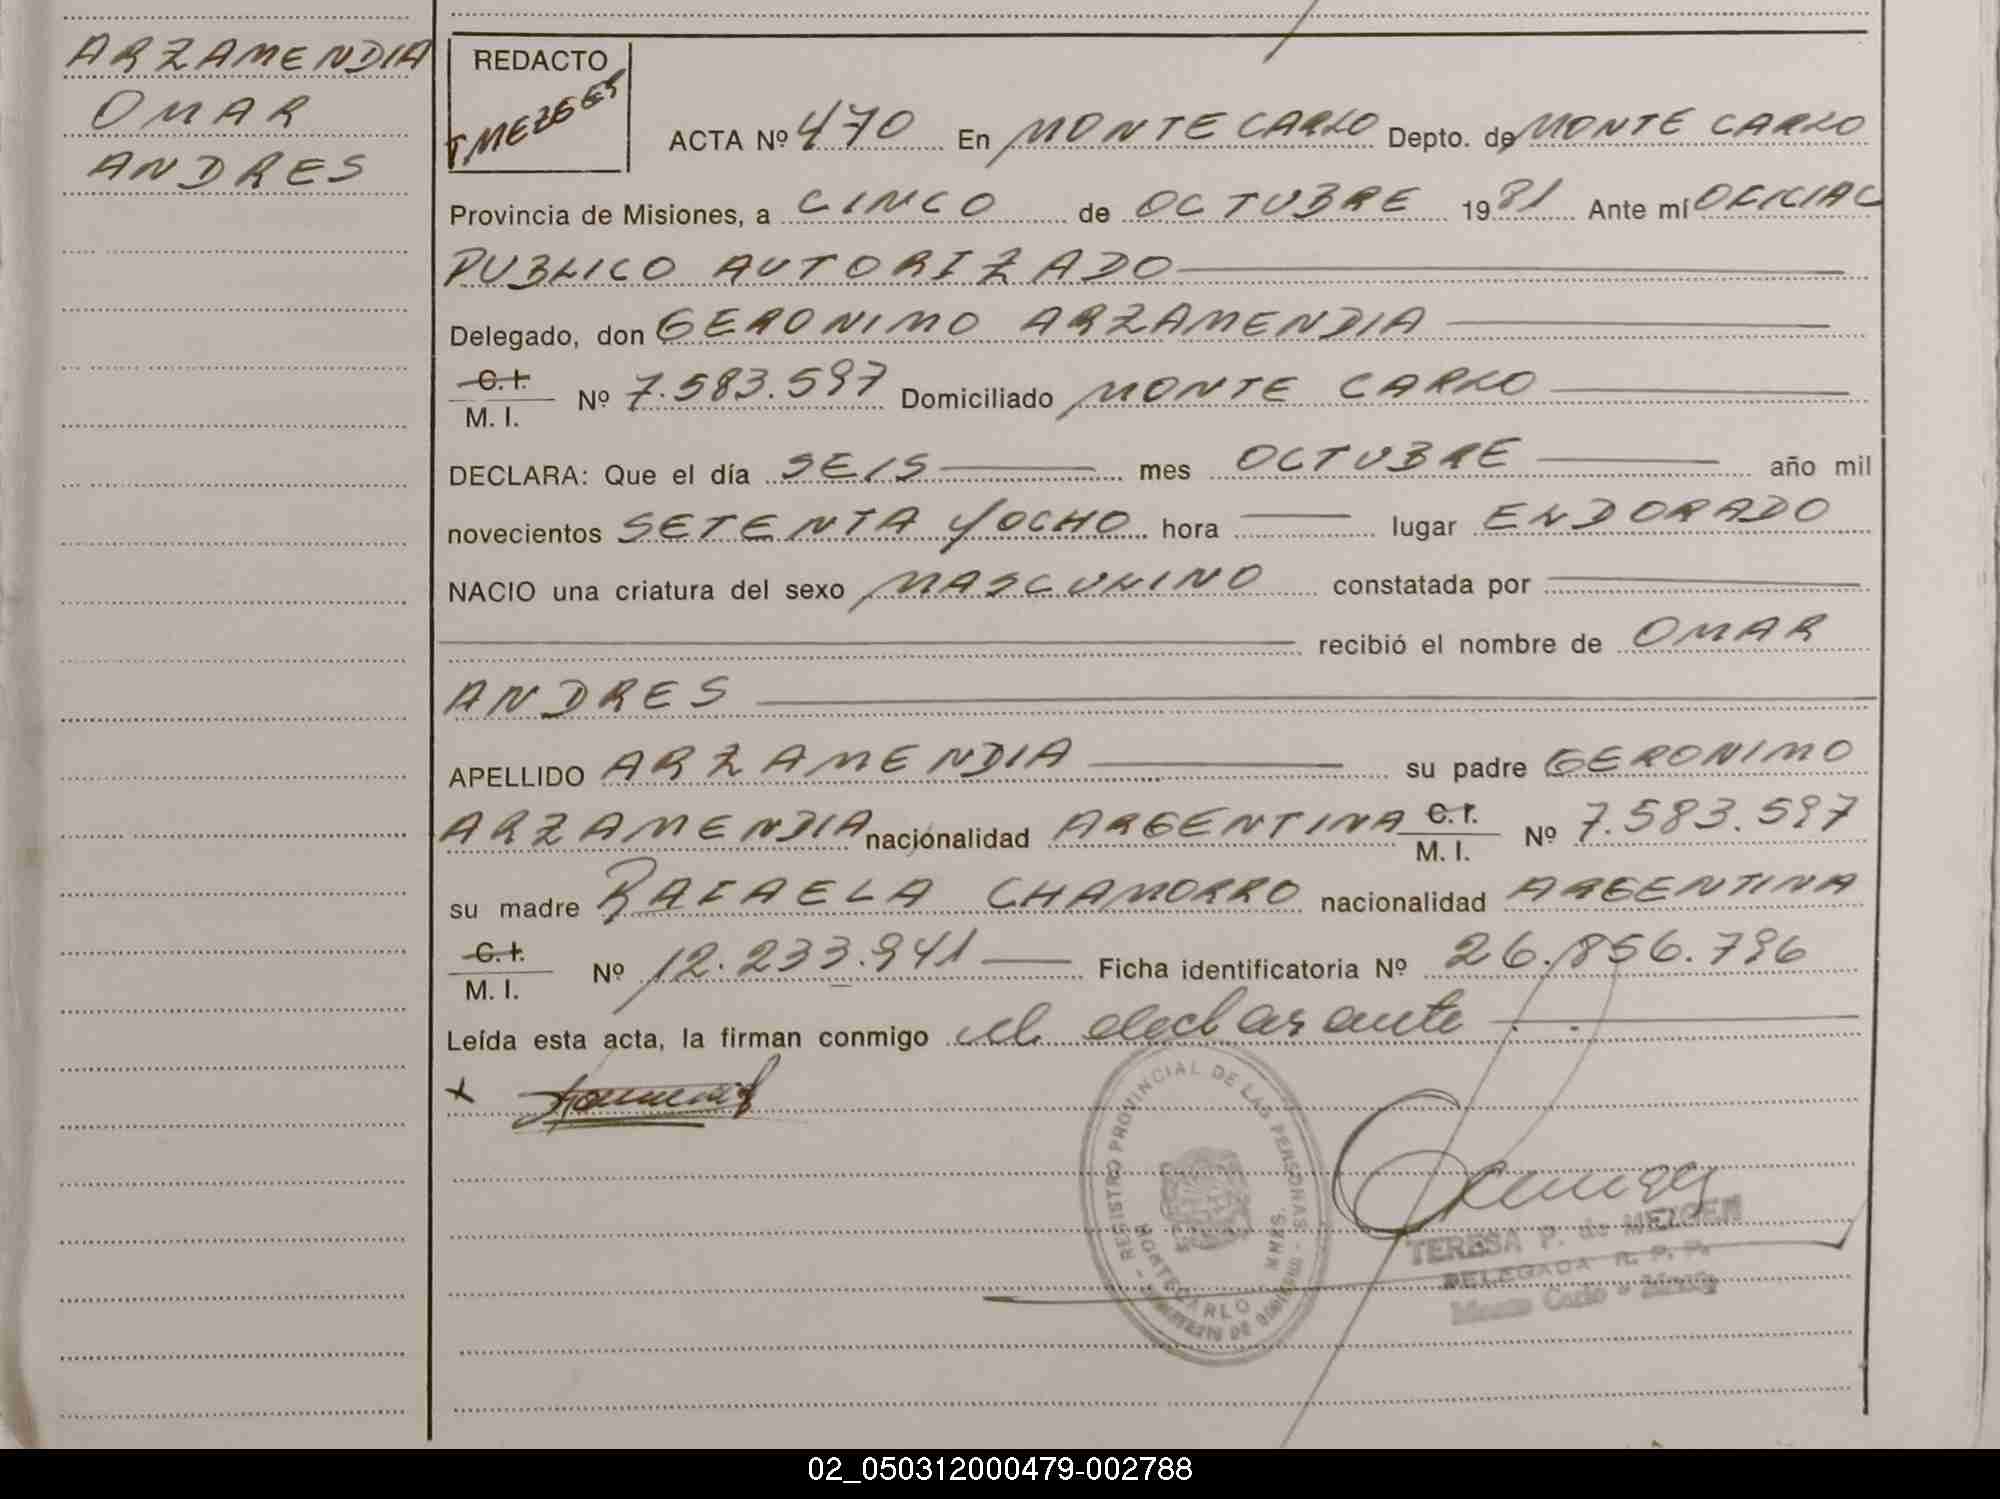 ARZAMENDIA
OMAR
ANDRES
REDACTO
ACTA Nº 470 En MONTECARLO Depto. de MONTE CARLO
Provincia de Misiones, a CINCO de OCTUBRE 1981 Ante mí OFICIAL
PUBLICO AUTORIZADO
Delegado, don GERONIMO ARZAMENDIA
C. I.
M. I. Nº 7.583.597 Domiciliado MONTE CARLO
DECLARA: Que el día SEIS mes OCTUBRE año mil
novecientos SETENTA Y OCHO hora lugar ENDORADO
NACIO una criatura del sexo MASCULINO constatada por
recibió el nombre de OMAR
ANDRES
APELLIDO ARZAMENDIA su padre GERONIMO
ARZAMENDIA nacionalidad ARGENTINA C. I. M. I. Nº 7.583.597
su madre RAFAELA CHAMORRO nacionalidad ARGENTINA
C. I.
M. I. Nº 12.233.941 Ficha identificatoria Nº 26.856.796
Leída esta acta, la firman conmigo el declarante
x
REGISTRO PROVINCIAL DE LAS PERSONAS
MONTECARLO
TERESA P. de MEZGER
DELEGADA R. P. P.
Monte Carlo - Mnes
02_050312000479-002788